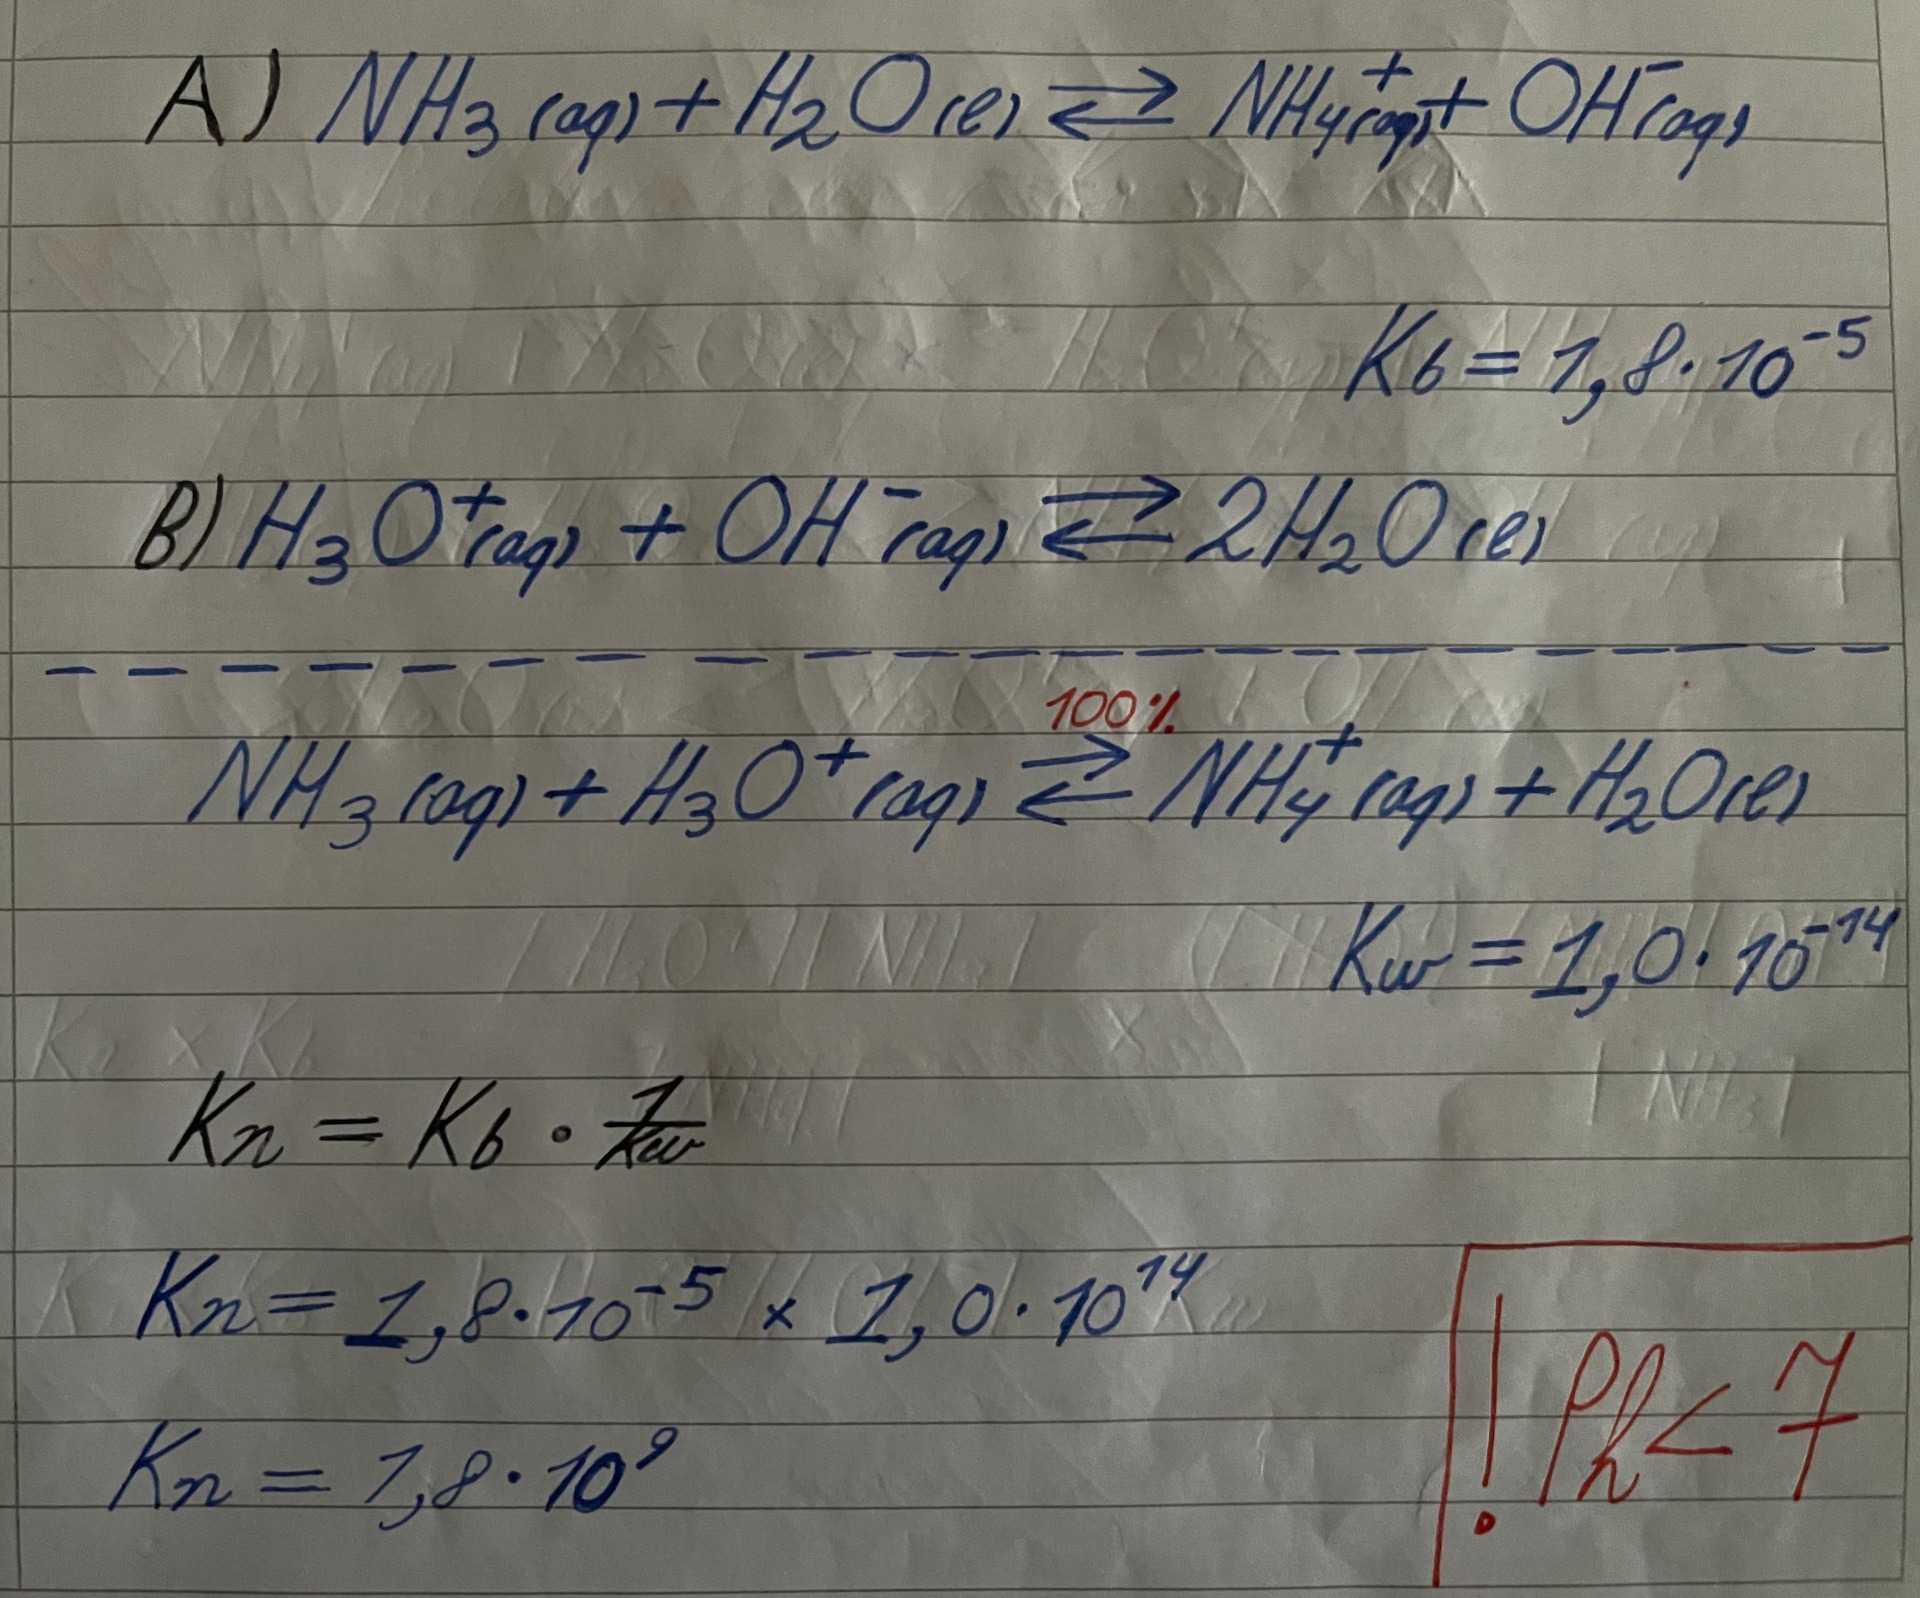 A) NH₃ (aq) + H₂O (l) ⇄ NH₄⁺ (aq) + OH⁻ (aq)
Kb = 1,8 · 10⁻⁵
B) H₃O⁺ (aq) + OH⁻ (aq) ⇄ 2H₂O (l)
100%
NH₃ (aq) + H₃O⁺ (aq) ⇄ NH₄⁺ (aq) + H₂O (l)
Kw = 1,0 · 10⁻¹⁴
Kn = Kb · 1/Kw
Kn = 1,8 · 10⁻⁵ × 1,0 · 10¹⁴
Kn = 1,8 · 10⁹
! Ph < 7